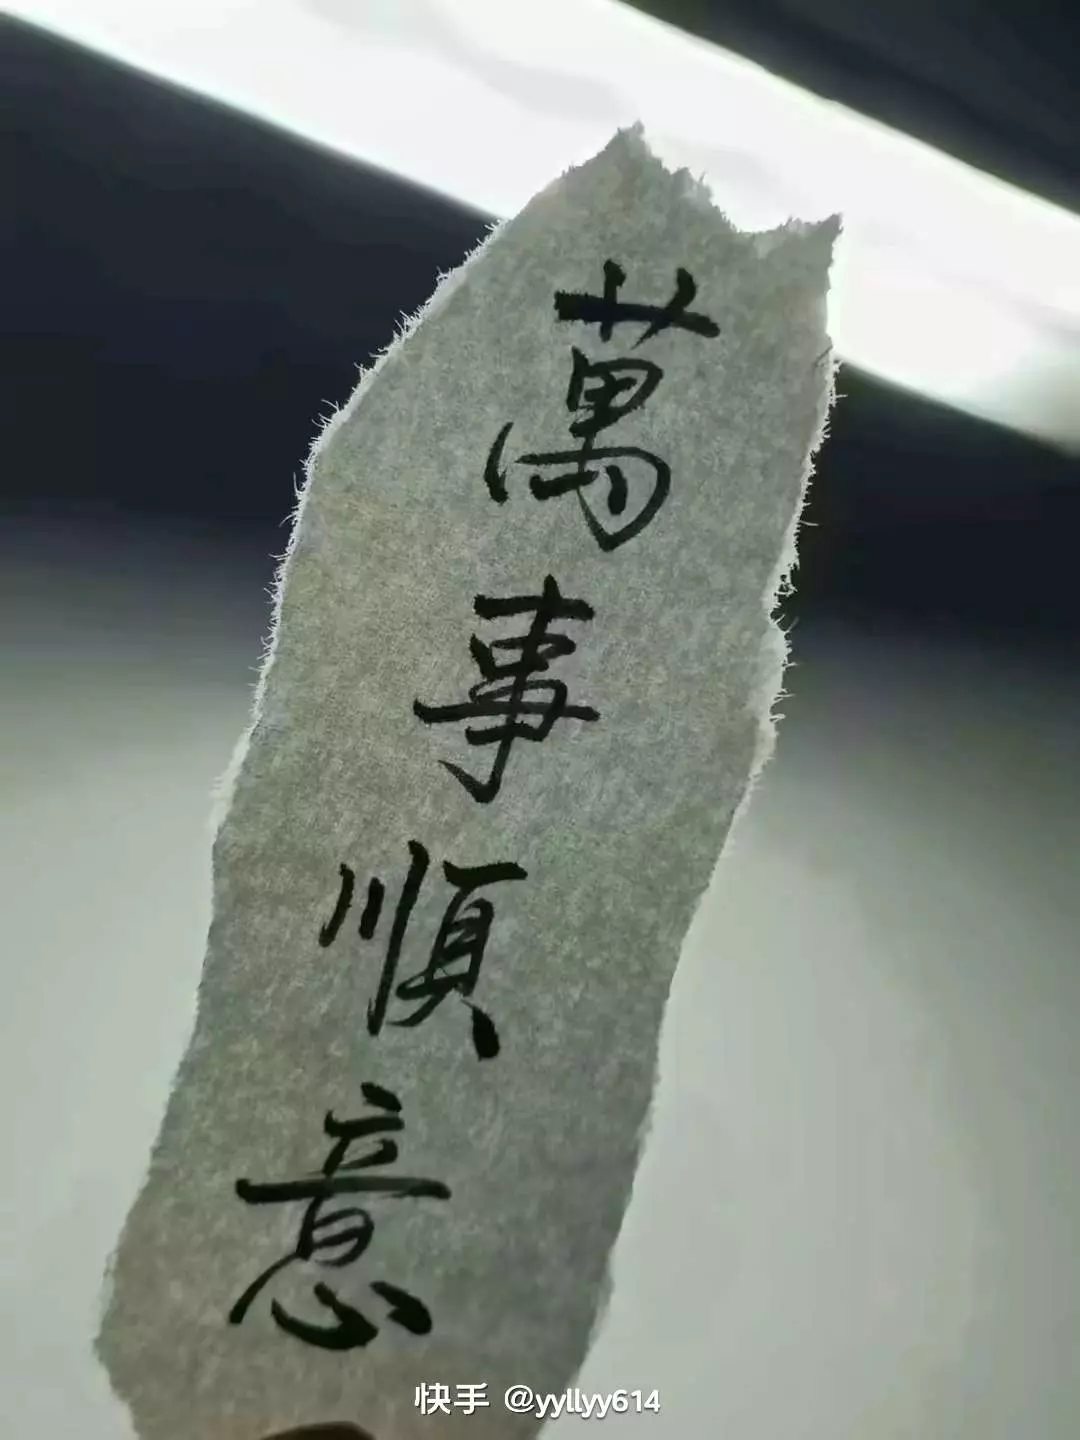 萬事順意
快手 @yyllyy614